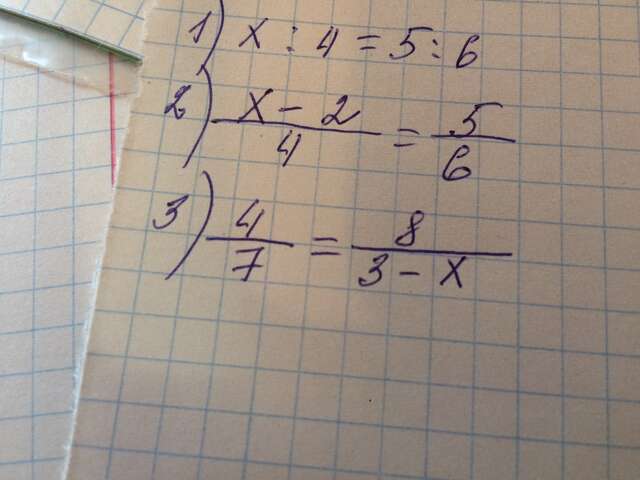 1) x : 4 = 5 : 6
2) x - 2 / 4 = 5 / 6
3) 4 / 7 = 8 / 3 - x